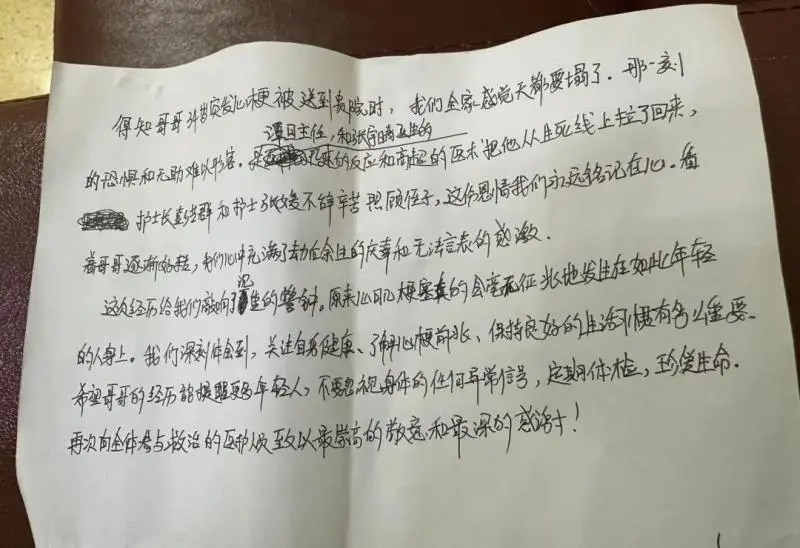 得知哥哥31岁突发心梗被送到贵院时，我们全家感觉天都要塌了．那一刻
谭日主任，和张宇晴医生的
的恐惧和无助难以形容．迅速的反应和高超的医术把他从生死线上拉了回来，
护士长彭 群和护士张媛不辞辛苦照顾侄子，这份恩情我们永远铭记在心．看
着哥哥逐渐好转，我们心中充满了劫后余生的庆幸和无法言表的感激．
这次经历给我们敲响了沉重的警钟。原来心肌梗塞真的会毫无征兆地发生在如此年轻
的人身上。我们深刻体会到，关注自身健康、了解心梗前兆、保持良好的生活习惯有多么重要．
希望哥哥的经历能提醒更多年轻人，不要忽视身体的任何异常信号，定期体检，珍爱生命．
再次向全体参与救治的医护人员致以最崇高的敬意和最深的感谢！